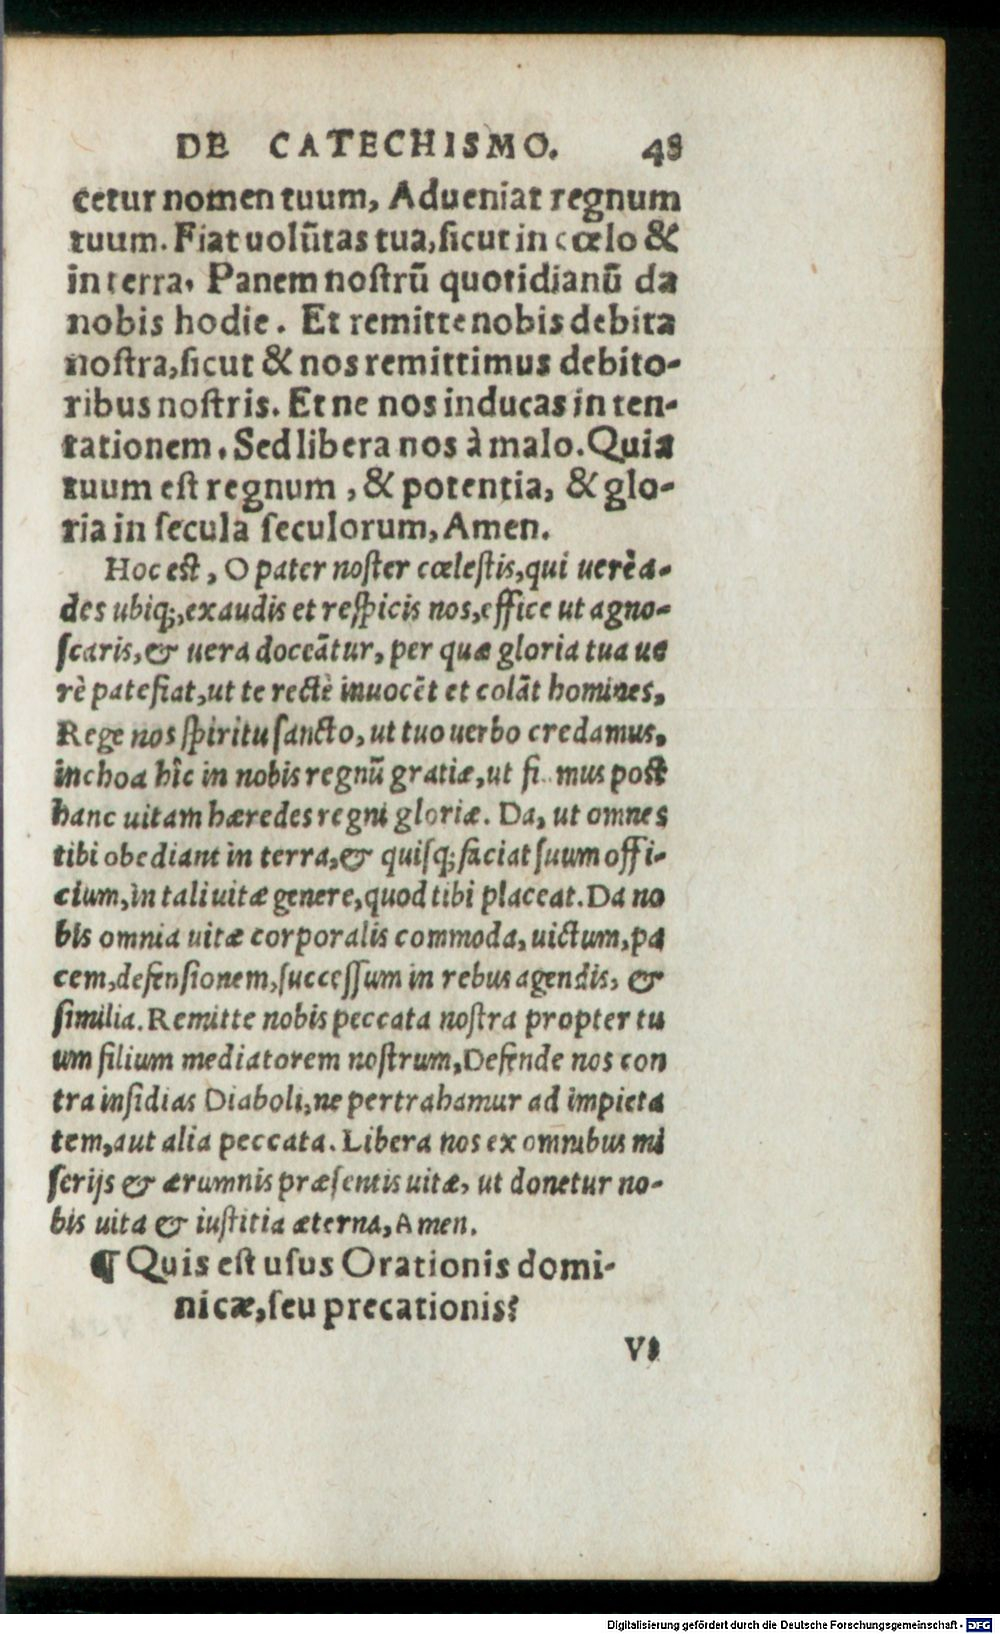 DE CATECHISMO. 48
cetur nomen tuum, Adueniat regnum
tuum. Fiat uolūtas tua, ſicut in cœlo &
in terra. Panem noſtrū quotidianū da
nobis hodie. Et remitte nobis debita
noſtra, ſicut & nos remittimus debito-
ribus noſtris. Et ne nos inducas in ten-
tationem. Sed libera nos à malo. Quia
tuum eſt regnum, & potentia, & glo-
ria in ſecula ſeculorum, Amen.
Hoc eſt, O pater noſter cœleſtis, qui uerè a-
des ubiq;, exaudis et reſpicis nos, effice ut agno-
ſcaris, & uera doceātur, per quæ gloria tua ue
rè patefiat, ut te rectè inuocēt et colāt homines,
Rege nos ſpiritu ſancto, ut tuo uerbo credamus,
inchoa hîc in nobis regnū gratiæ, ut ſi mus poſt
hanc uitam hæredes regni gloriæ. Da, ut omnes
tibi obediant in terra, & quiſq; faciat ſuum offi-
cium, in tali uitæ genere, quod tibi placeat. Da no
bis omnia uitæ corporalis commoda, uictum, pa
cem, defenſionem, ſucceſſum in rebus agendis, &
ſimilia. Remitte nobis peccata noſtra propter tu
um filium mediatorem noſtrum, Defende nos con
tra inſidias Diaboli, ne pertrahamur ad impieta
tem, aut alia peccata. Libera nos ex omnibus mi
ſerijs & ærumnis præſentis uitæ, ut donetur no-
bis uita & iuſtitia æterna, Amen.
¶ Quis eſt uſus Orationis domi-
nicæ, ſeu precationis?
Vſ
Digitalisierung gefördert durch die Deutsche Forschungsgemeinschaft - DFG